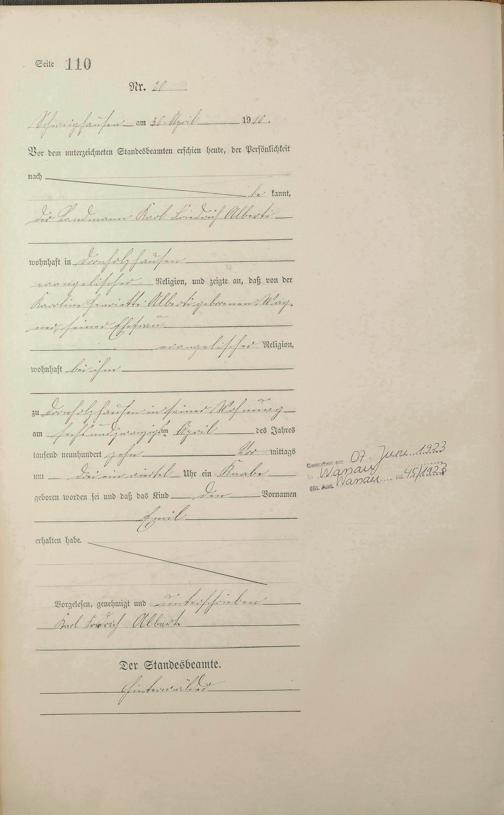 Seite 110
Nr. 28
Schweighausen am 30. April 1910.
Vor dem unterzeichneten Standesbeamten erschien heute, der Persönlichkeit
nach
be kannt,
der Landmann Karl Friedrich Alberti
wohnhaft in Dornholzhausen
evangelischer Religion, und zeigte an, daß von der
Karoline Henriette Alberti geborenen Wag-
ner seiner Ehefrau
evangelischer Religion,
wohnhaft bei ihm
zu Dornholzhausen in seiner Wohnung
am sechsundzwanzigsten April des Jahres
tausend neunhundert zehn Vor mittags
um drei ein viertel Uhr ein Knabe
geboren worden sei und daß das Kind den Vornamen
Emil
erhalten habe.
Vorgelesen, genehmigt und unterschrieben
Karl Friedrich Alberti
Der Standesbeamte.
Hinterwälder
07. Juni 1923
45/1923